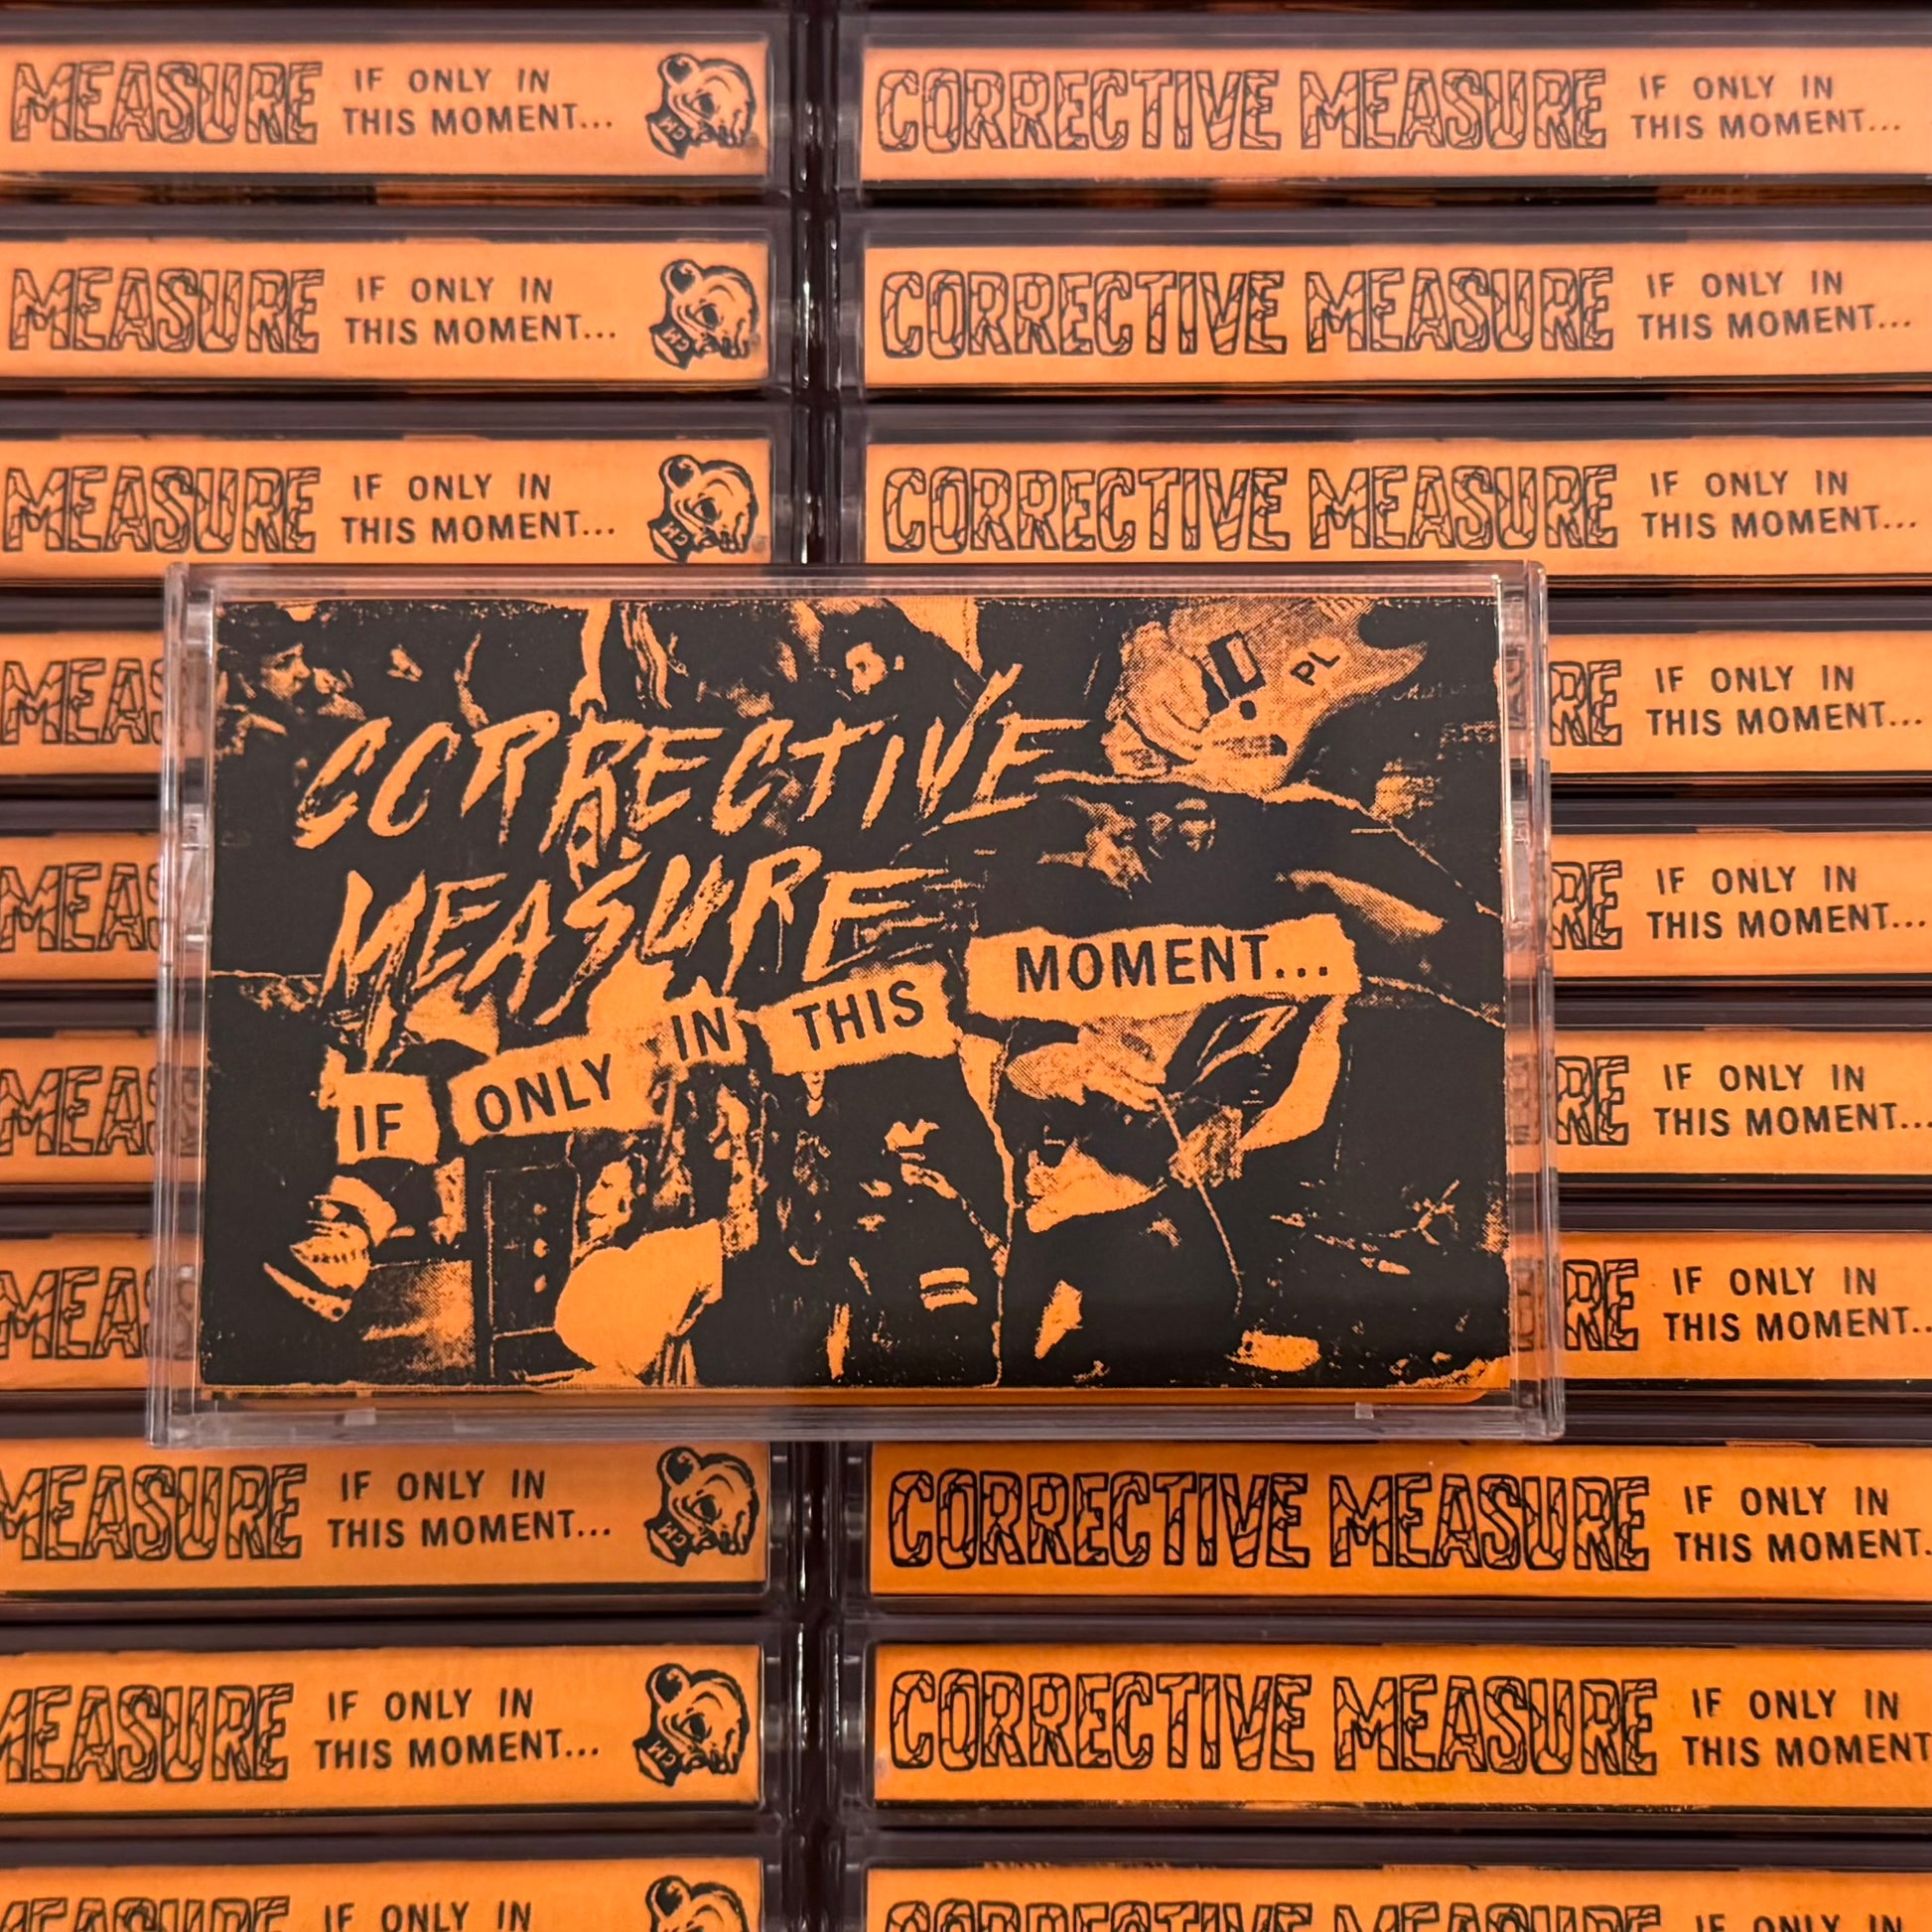 MEASURE IF ONLY IN
THIS MOMENT...
CM
CORRECTIVE MEASURE IF ONLY IN
THIS MOMENT...
MEASURE IF ONLY IN
THIS MOMENT...
CM
CORRECTIVE MEASURE IF ONLY IN
THIS MOMENT...
MEASURE IF ONLY IN
THIS MOMENT...
CM
CORRECTIVE MEASURE IF ONLY IN
THIS MOMENT...
PL
CORRECTIVE
MEASURE
IF ONLY IN THIS MOMENT...
MEAS
RE IF ONLY IN
THIS MOMENT...
MEAS
RE IF ONLY IN
THIS MOMENT...
MEAS
RE IF ONLY IN
THIS MOMENT...
MEAS
RE IF ONLY IN
THIS MOMENT..
MEASURE IF ONLY IN
THIS MOMENT...
CM
CORRECTIVE MEASURE IF ONLY IN
THIS MOMENT.
MEASURE IF ONLY IN
THIS MOMENT...
CM
CORRECTIVE MEASURE IF ONLY IN
THIS MOMENT
MEASURE IF ONLY IN
CORRECTIVE MEASURE IF ONLY IN